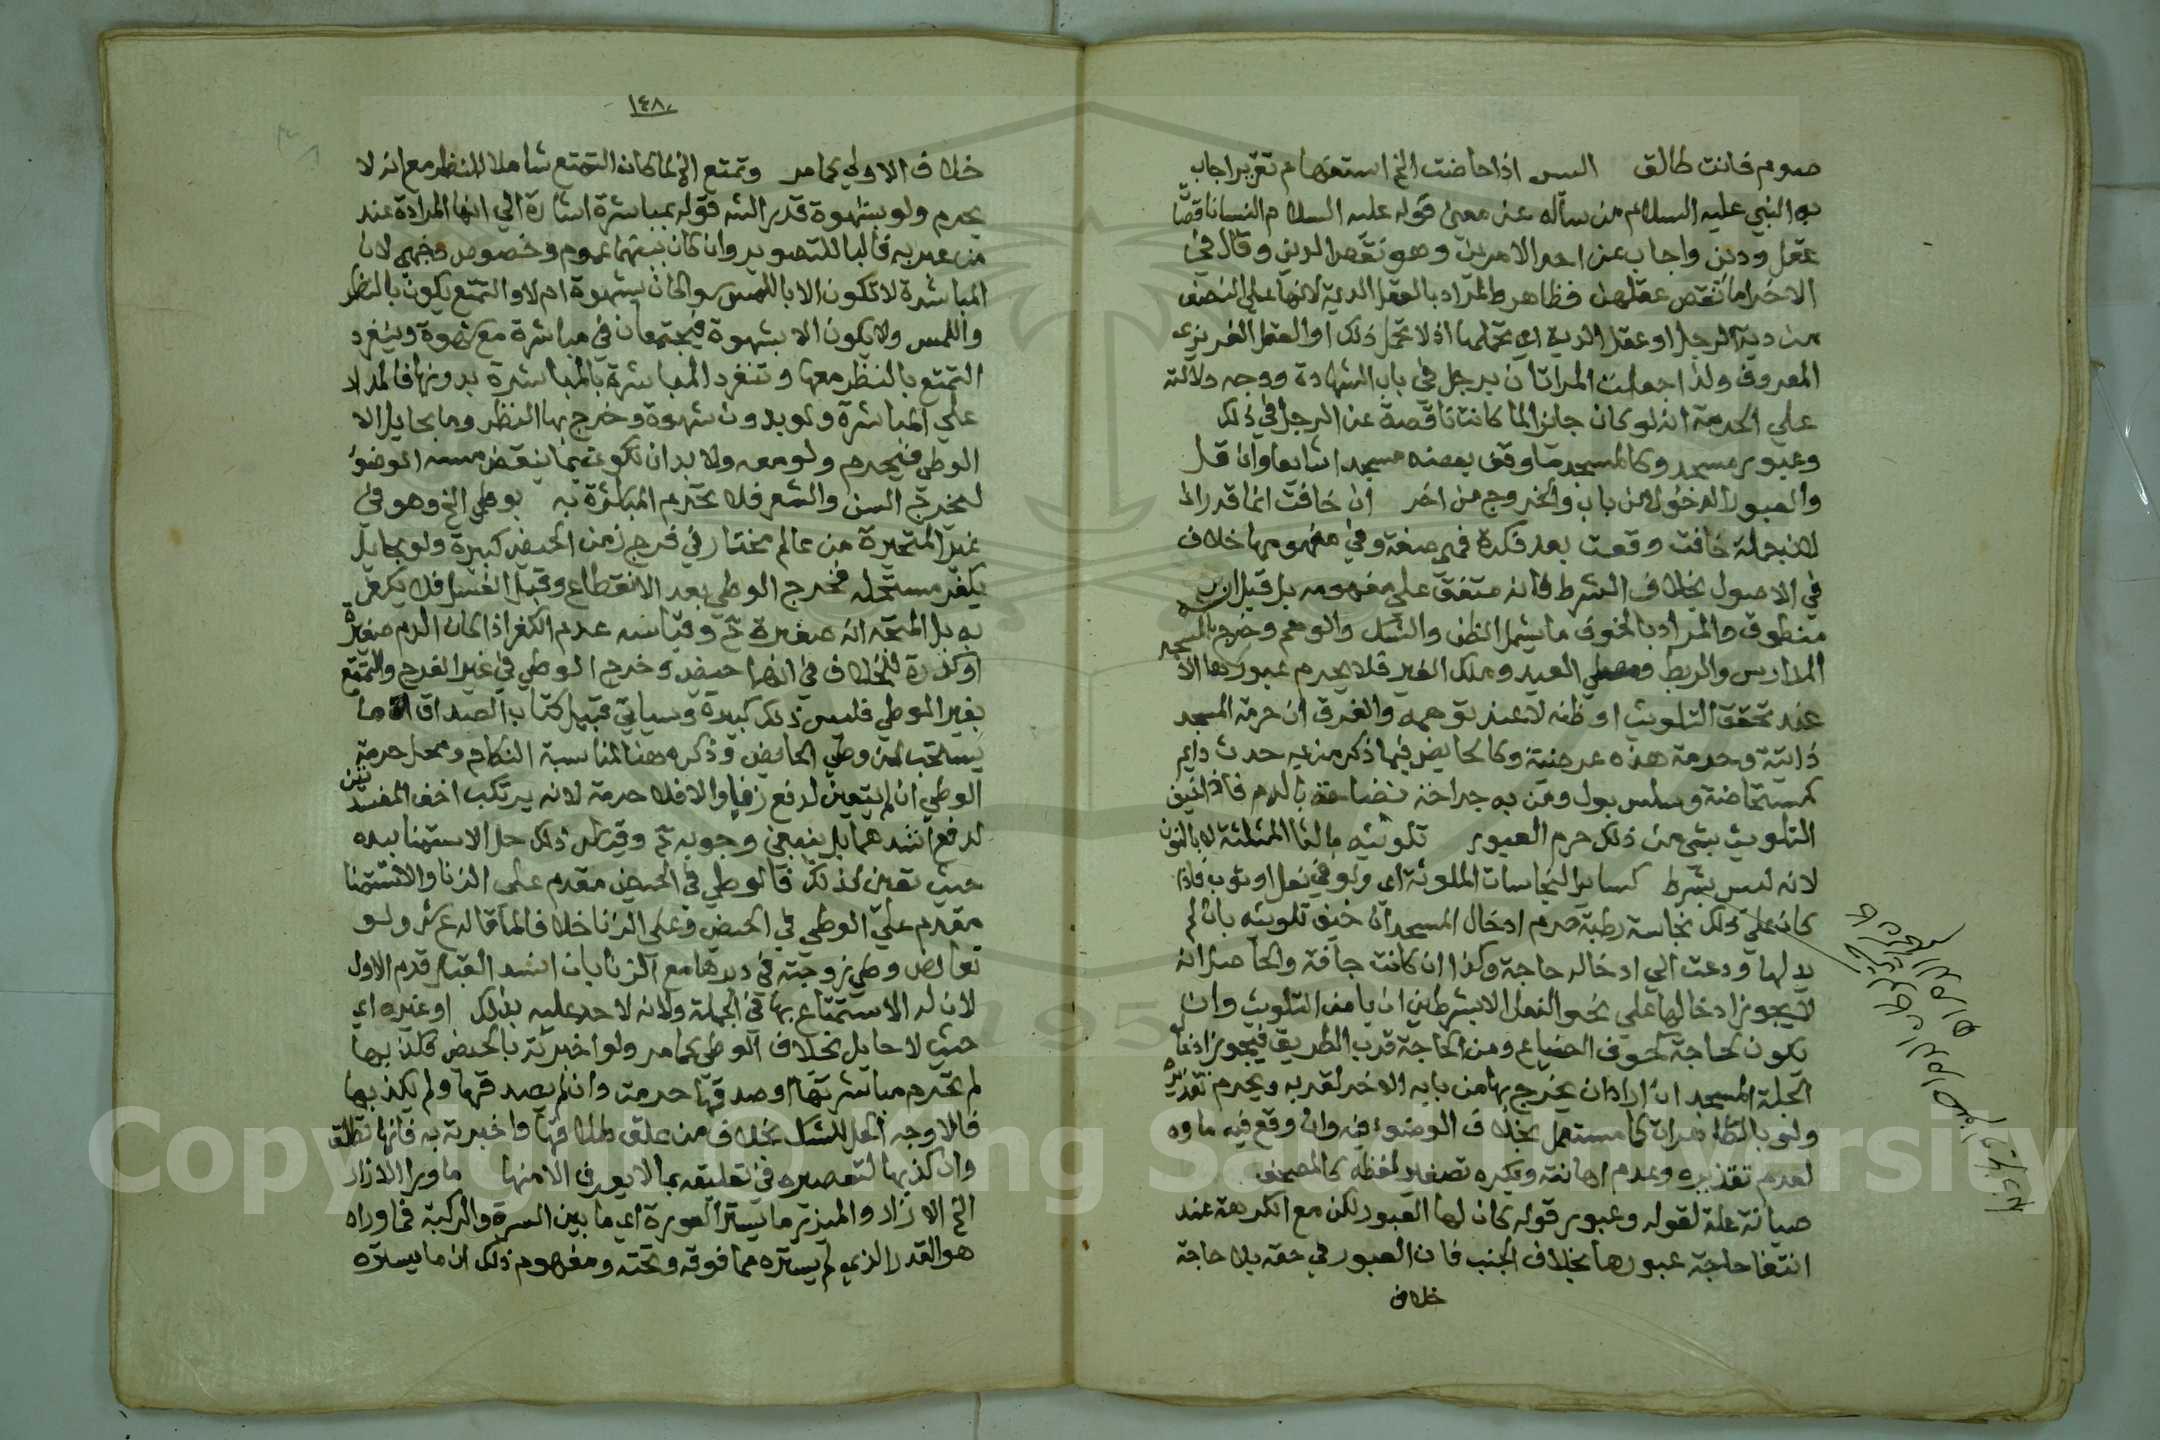 صوم فانت طالق اليس اذا حاضت الخ استفهام تقرير اجاب
به النبي عليه السلام من سأله عن معنى قوله عليه السلام النسا ناقصات
عقل ودين واجاب عن احد الامرين وهو نقص الدين وقال في
الاخر اما نقص عقلهن فظاهر والمراد بالعقل الدية لانها على النصف
من دية الرجل او عقل الدية اي تحملها اذ لا تحمل ذلك او العقل الغريزي
المعروف ولذا جعلت المراتان برجل في باب الشهادة ووجه دلالته
على الحرمة انه لو كان جائزا لما كانت ناقصة عن الرجل في ذلك
وعبور مسجد وكالمسجد ما وقف بعضه مسجدا شايعا وان قل
والعبور الدخول من باب والخروج من اخر ان خافت انما قدر اذا
لان جملة خافت وقعت بعد نكرة فهي صفة وفي مفهومها خلاف
في الاصول بخلاف الشرط فانه متفق على مفهومه بل قيل انه
منطوق والمراد بالخوف ما يشمل الظن والشك والوهم وخرج بالمسجد
المدارس والربط ومصلى العيد وملك الغير فلا يحرم عبورها الا
عند تحقق التلويث او ظنه لا عند توهمه والفرق ان حرمة المسجد
ذاتية وحرمة هذه عرضية وكالحايض فيما ذكر من به حدث دايم
كمستحاضة وسلس بول ومن به جراحة نضاخة بالدم فاذا خيف
التلويث بشي من ذلك حرم العبور تلويثه بالثا المثلثة لا بالنون
لانه ليس بشرط كساير النجاسات الملوثة اي ولو في نعل او ثوب فاذا
كان على ذلك نجاسة رطبة حرم ادخال المسجد ان خيف تلويثه بان لم
يدلها ودعت الي ادخاله حاجة وكذا ان كانت جافة والحاصل انه
لا يجوز ادخالها على نحو النعل الا بشرطين ان يامن التلويث وان
تكون لحاجة كخوف الضياع ومن الحاجة قرب الطريق فيجوز ادخال
الجلة المسجد ان اراد ان يخرج بها من بابه الاخر لقربه ويحرم تقذيره
ولو بالطاهرات كما مستعمل بخلاف الوضوء فيه وان وقع فيه ماوه
لعدم تقذيره وعدم اهانته ويكره تصغير لفظه كالمصحف
صيانة علة لقوله وعبور قوله كان لها العبور لكن مع الكراهة عند
انتفا حاجة عبورها بخلاف الجنب فان العبور في حقه بلا حاجة
خلاف
١٤٨
خلاف الاولى كما مر وتمتع الخ لما كان التمتع شاملا للنظر مع انه لا
يحرم ولو بشهوة قدر الش قوله بمباشرة اشارة الي انها المرادة عند
من عبر به فالبا للتصوير وان كان بينهما عموم وخصوص وجهي لان
المباشرة لا تكون الا باللمس سوا كان بشهوة ام لا والتمتع يكون بالنظر
واللمس ولا يكون الا بشهوة فيجتمعان في مباشرة مع شهوة وينفرد
التمتع بالنظر معها وتنفرد المباشرة بالمباشرة بدونها فالمدار
على المباشرة ولو بدون شهوة وخرج بها النظر وما بحايل الا
الوطي فيحرم ولو معه ولا بد ان تكون بما ينقض مسه الوضوء
ليخرج السن والشعر فلا تحرم المباشرة به بوطي الخ وهو في
غير المتحيرة من عالم مختار في فرج زمن الحيض كبيرة ولو بحايل
يكفر مستحله فخرج الوطي بعد الانقطاع وقبل الغسل فلا يكفر
به بل المتجه انه صغيرة ح وقياسه عدم الكفر اذا كان الدم صفرة
او كدرة للخلاف في انهما حيض وخرج الوطي في غير الفرج والتمتع
بغير الوطي فليس ذلك كبيرة وسياتي قبيل كتاب الصداق ما
يستحب لمن وطي الحايض وذكره هنا لمناسبة الكلام ومحل حرمة
الوطي ان لم يتعين لدفع زنا والا فلا حرمة لانه يرتكب اخف المفسدتين
لدفع اشدهما بل ينبغي وجوبه ح وقياس ذلك حل الاستمنا بيده
حيث تعين لذلك فالوطي في الحيض مقدم على الزنا والاستمنا
مقدم على الوطي في الحيض وعلى الزنا خلافا لما قاله ع ش ولو
تعارض وطي زوجته في دبرها مع الزنا بان اشتد القبل قدم الاول
لان له الاستمتاع بها في الجملة ولانه لا حد عليه بذلك او غيره اي
حيث لا حايل بخلاف الوطي كما مر ولو اخبرته بالحيض فكذبها
لم تحرم مباشرتها او صدقها حرمت وان لم يصدقها ولم يكذبها
فالاوجه الحل للشك بخلاف من علق طلاقها واخبرته به فانها تطلق
وان كذبها لتقصيره في تعليقه بما لا يعرف الا منها ما ورا الازار
الخ الازار والميزر ما يستر العورة اي ما بين السرة والركبة فما وراه
هو القدر الذي لم يستره مما فوقه وتحته ومفهوم ذلك ان ما يستره